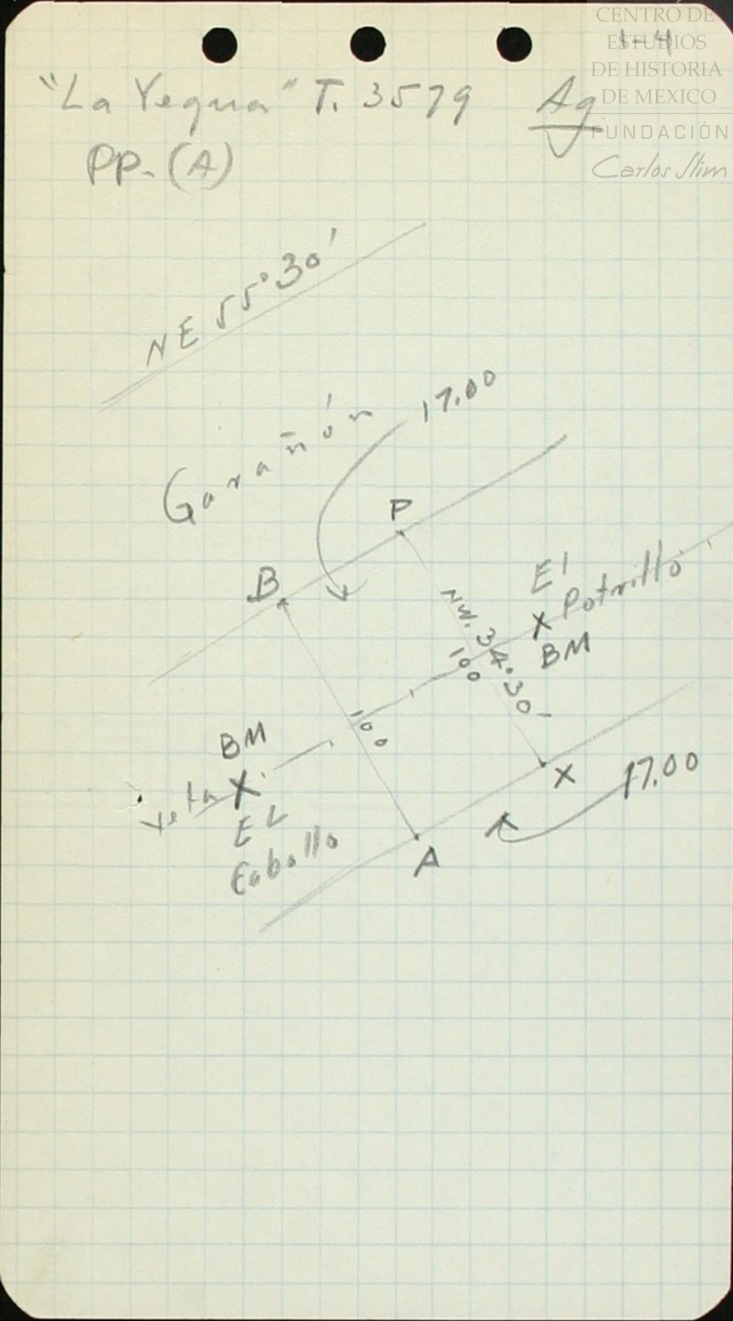 CENTRO DE
ESTUDIOS
DE HISTORIA
DE MEXICO
FUNDACIÓN
Carlos Slim
1-4
"La Yegua" T. 3579 Ag
PP. (A)
NE 55°30'
Garañón
17.00
P
B
El
Potrillo
X
BM
NW. 34°30'
100
100
BM
Veta X
EL
Caballo
X
17.00
A